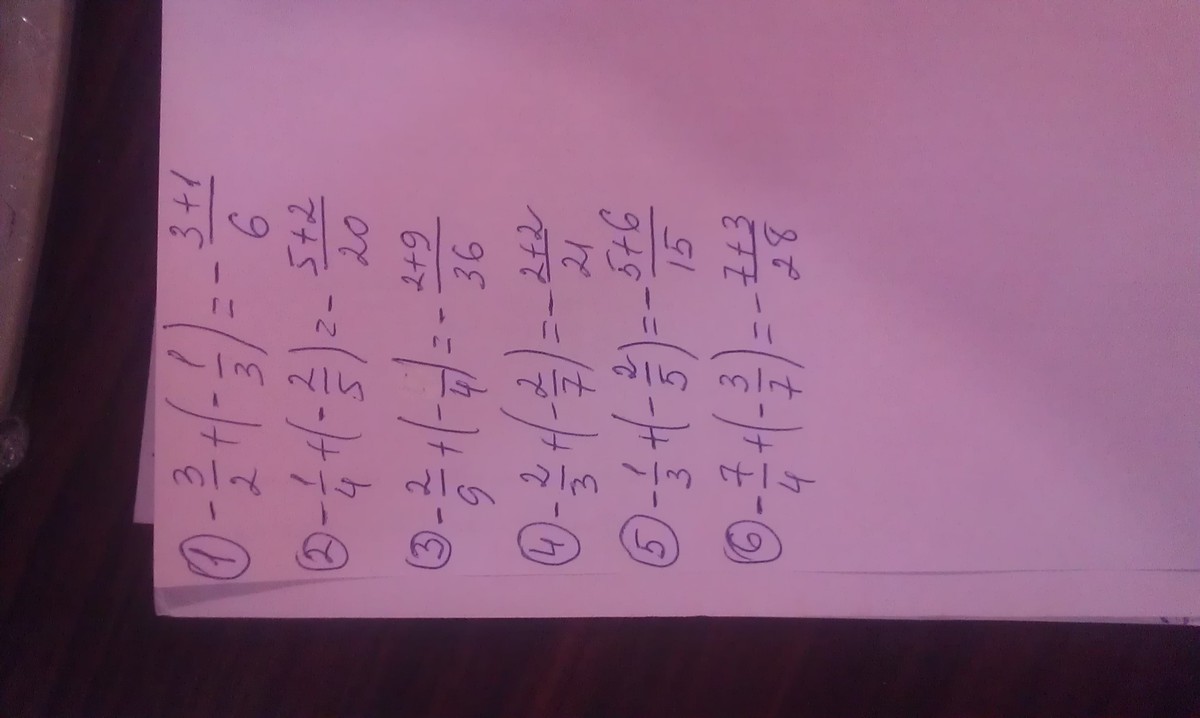 ① -3/2 + (-1/3) = -(3+1)/6
② -1/4 + (-2/5) = -(5+2)/20
③ -2/9 + (-1/4) = -(2+9)/36
④ -2/3 + (-2/7) = -(2+2)/21
⑤ -1/3 + (-2/5) = -(5+6)/15
⑥ -7/4 + (-3/7) = -(7+3)/28